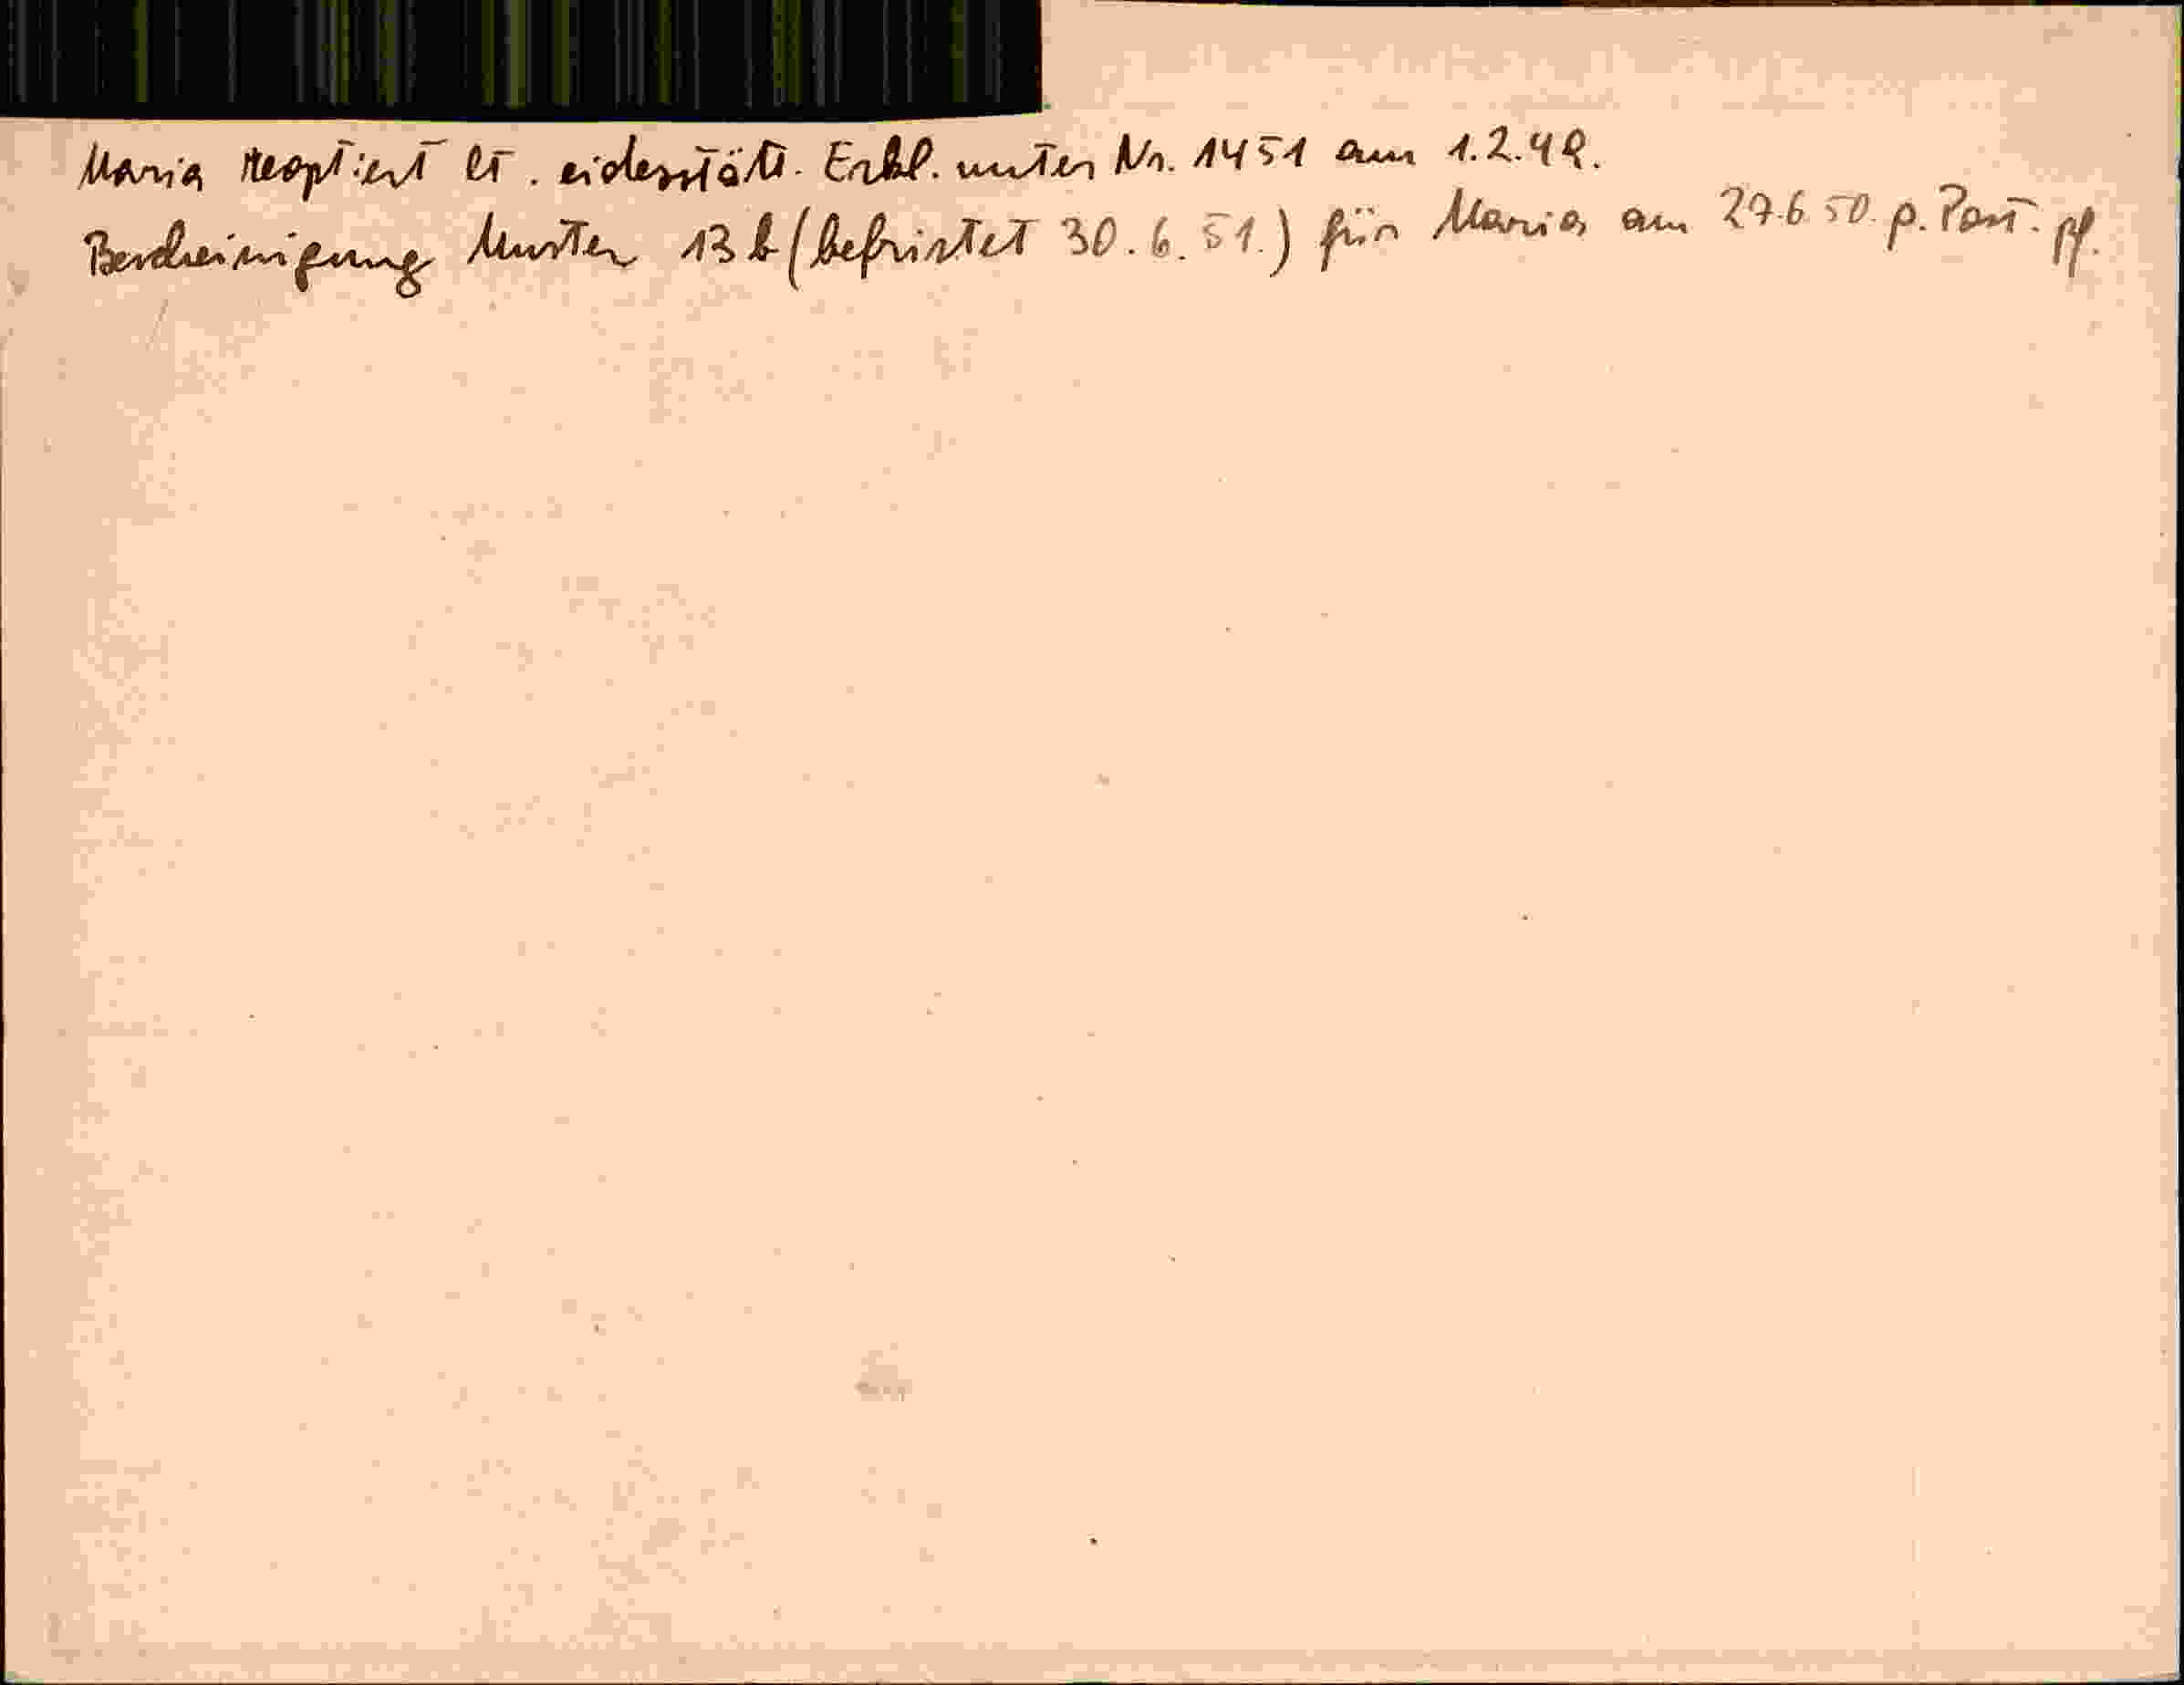 Maria reoptiert lt. eidesstätt. Erkl. unter Nr. 1451 am 1.2.49.
Bescheinigung Muster 13 b (befristet 30.6.51.) für Maria am 27.6.50. p. Post. pf.